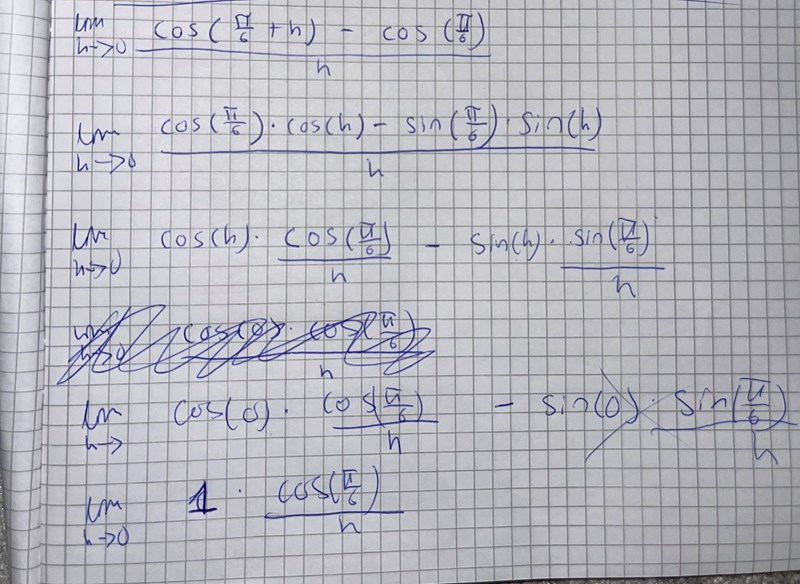 lim h→0 cos(π/6 + h) - cos(π/6) / h
lim h→0 cos(π/6) · cos(h) - sin(π/6) · sin(h) / h
lim h→0 cos(h) · cos(π/6) / h - sin(h) · sin(π/6) / h
lim h→ cos(0) · cos(π/6) / h - sin(0) · sin(π/6) / h
lim h→0 1 · cos(π/6) / h